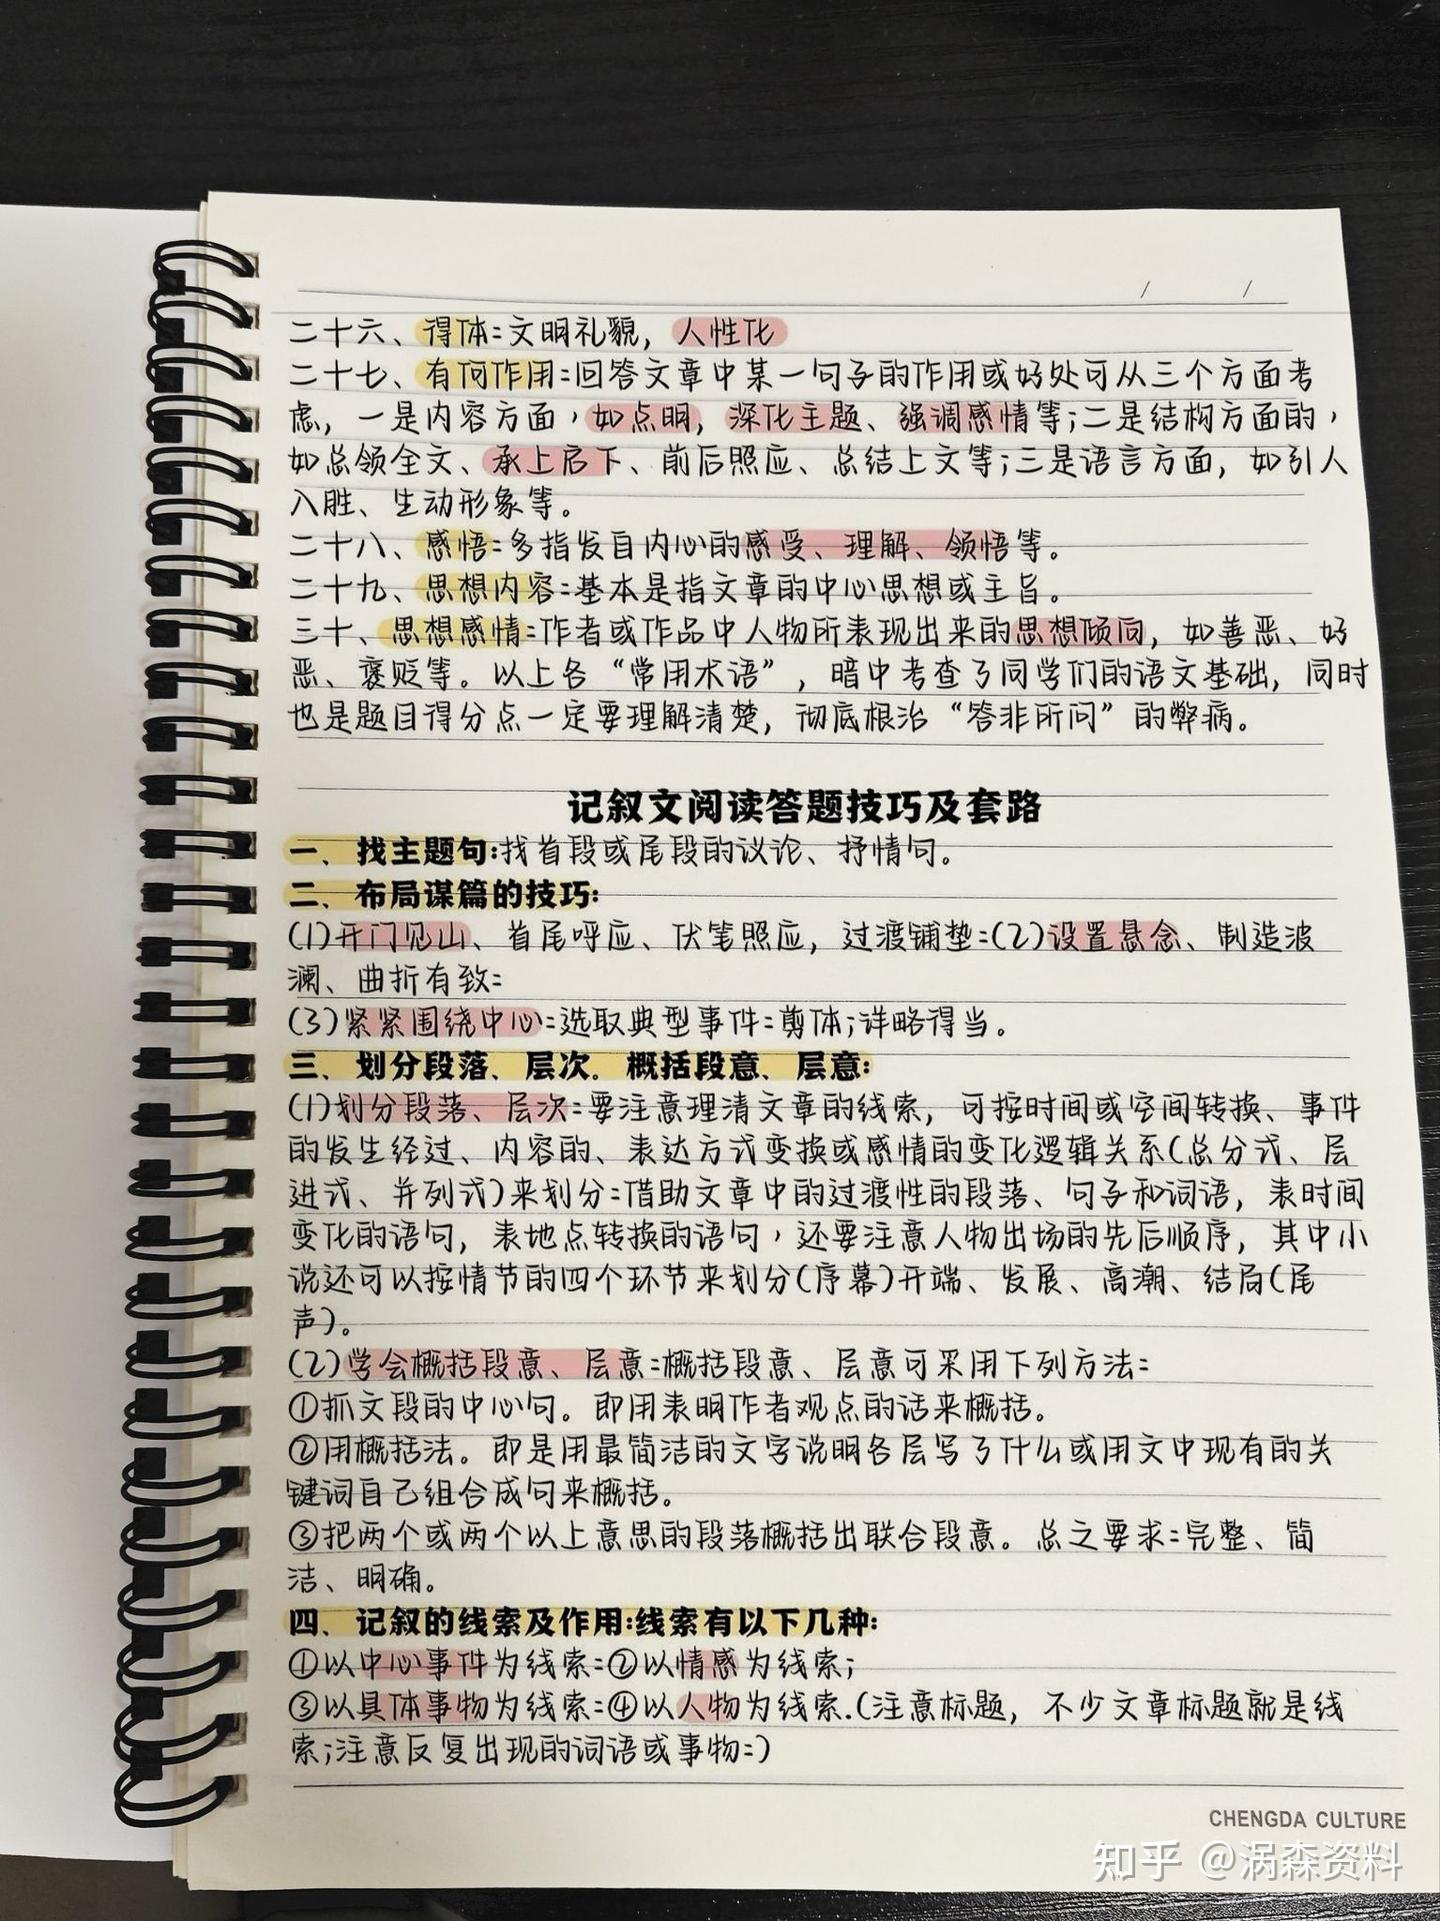 / /
二十六、得体:文明礼貌，人性化
二十七、有何作用:回答文章中某一句子的作用或好处可从三个方面考
虑，一是内容方面，如点明，深化主题、强调感情等;二是结构方面的，
如总领全文、承上启下、前后照应、总结上文等;三是语言方面，如引人
入胜、生动形象等。
二十八、感悟:多指发自内心的感受、理解、领悟等。
二十九、思想内容:基本是指文章的中心思想或主旨。
三十、思想感情:作者或作品中人物所表现出来的思想倾向，如善恶、好
恶、褒贬等。以上各“常用术语”，暗中考查了同学们的语文基础，同时
也是题目得分点一定要理解清楚，彻底根治“答非所问”的弊病。
记叙文阅读答题技巧及套路
一、找主题句:找首段或尾段的议论、抒情句。
二、布局谋篇的技巧:
(1)开门见山、首尾呼应、伏笔照应，过渡铺垫:(2)设置悬念、制造波
澜、曲折有致:
(3)紧紧围绕中心:选取典型事件:剪体;详略得当。
三、划分段落、层次。概括段意、层意:
(1)划分段落、层次:要注意理清文章的线索，可按时间或空间转换、事件
的发生经过、内容的、表达方式变换或感情的变化逻辑关系(总分式、层
进式、并列式)来划分:借助文章中的过渡性的段落、句子和词语，表时间
变化的语句，表地点转换的语句，还要注意人物出场的先后顺序，其中小
说还可以按情节的四个环节来划分(序幕)开端、发展、高潮、结局(尾
声)。
(2)学会概括段意、层意:概括段意、层意可采用下列方法:
①抓文段的中心句。即用表明作者观点的话来概括。
②用概括法。即是用最简洁的文字说明各层写了什么或用文中现有的关
键词自己组合成句来概括。
③把两个或两个以上意思的段落概括出联合段意。总之要求:完整、简
洁、明确。
四、记叙的线索及作用:线索有以下几种:
①以中心事件为线索:②以情感为线索;
③以具体事物为线索:④以人物为线索.(注意标题，不少文章标题就是线
索;注意反复出现的词语或事物:)
CHENGDA CULTURE
知乎 @涡森资料